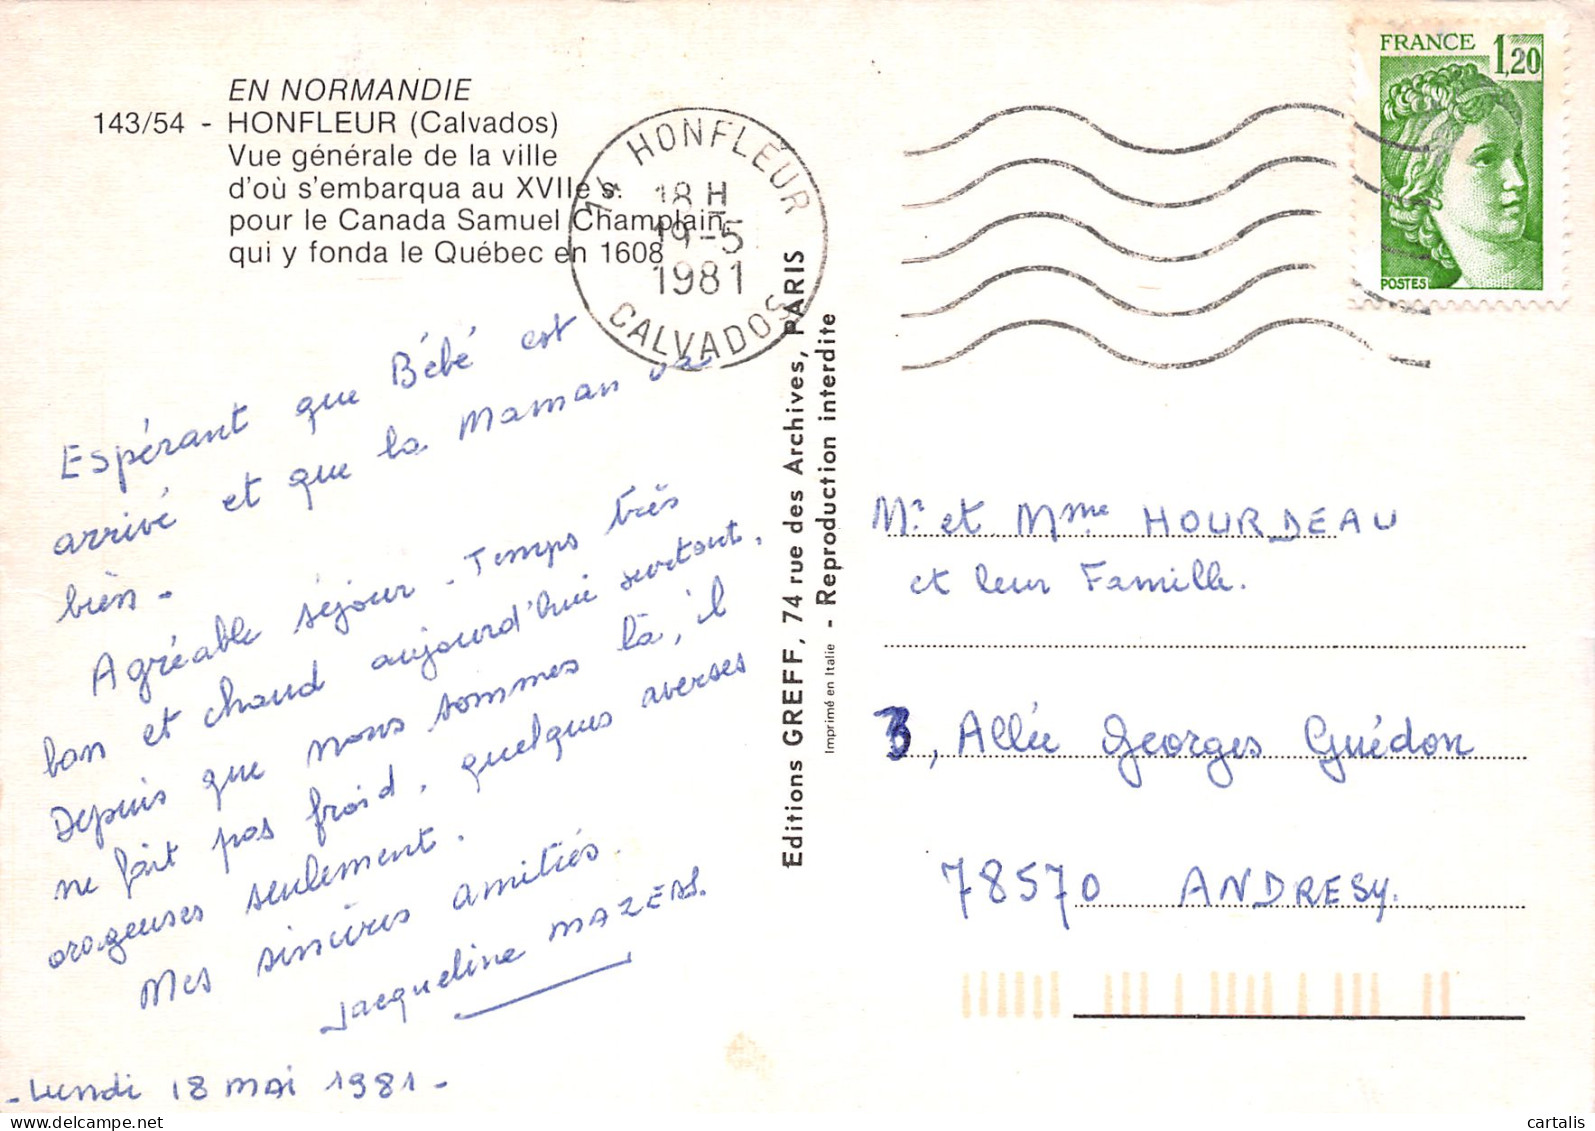 EN NORMANDIE
143/54 - HONFLEUR (Calvados)
Vue générale de la ville
d'où s'embarqua au XVIIe s.
pour le Canada Samuel Champlain,
qui y fonda le Québec en 1608
14 HONFLEUR
18 H
19-5
1981
CALVADOS
FRANCE 1,20
POSTES
Espérant que Bébé est
arrivé et que la Maman va
bien -
Agréable séjour - Temps très
bon et chaud aujourd'hui surtout.
Depuis que nous sommes là, il
ne fait pas froid, quelques averses
orageuses seulement.
Mes sincères amitiés.
Jacqueline MAZERS.
- Lundi 18 mai 1981 -
Editions GREFF, 74 rue des Archives, PARIS
Imprimé en Italie - Reproduction interdite
Mr et Mme HOURDEAU
et leur Famille.
3, Allée Georges Guédon
78570 ANDRESY.
cartalis